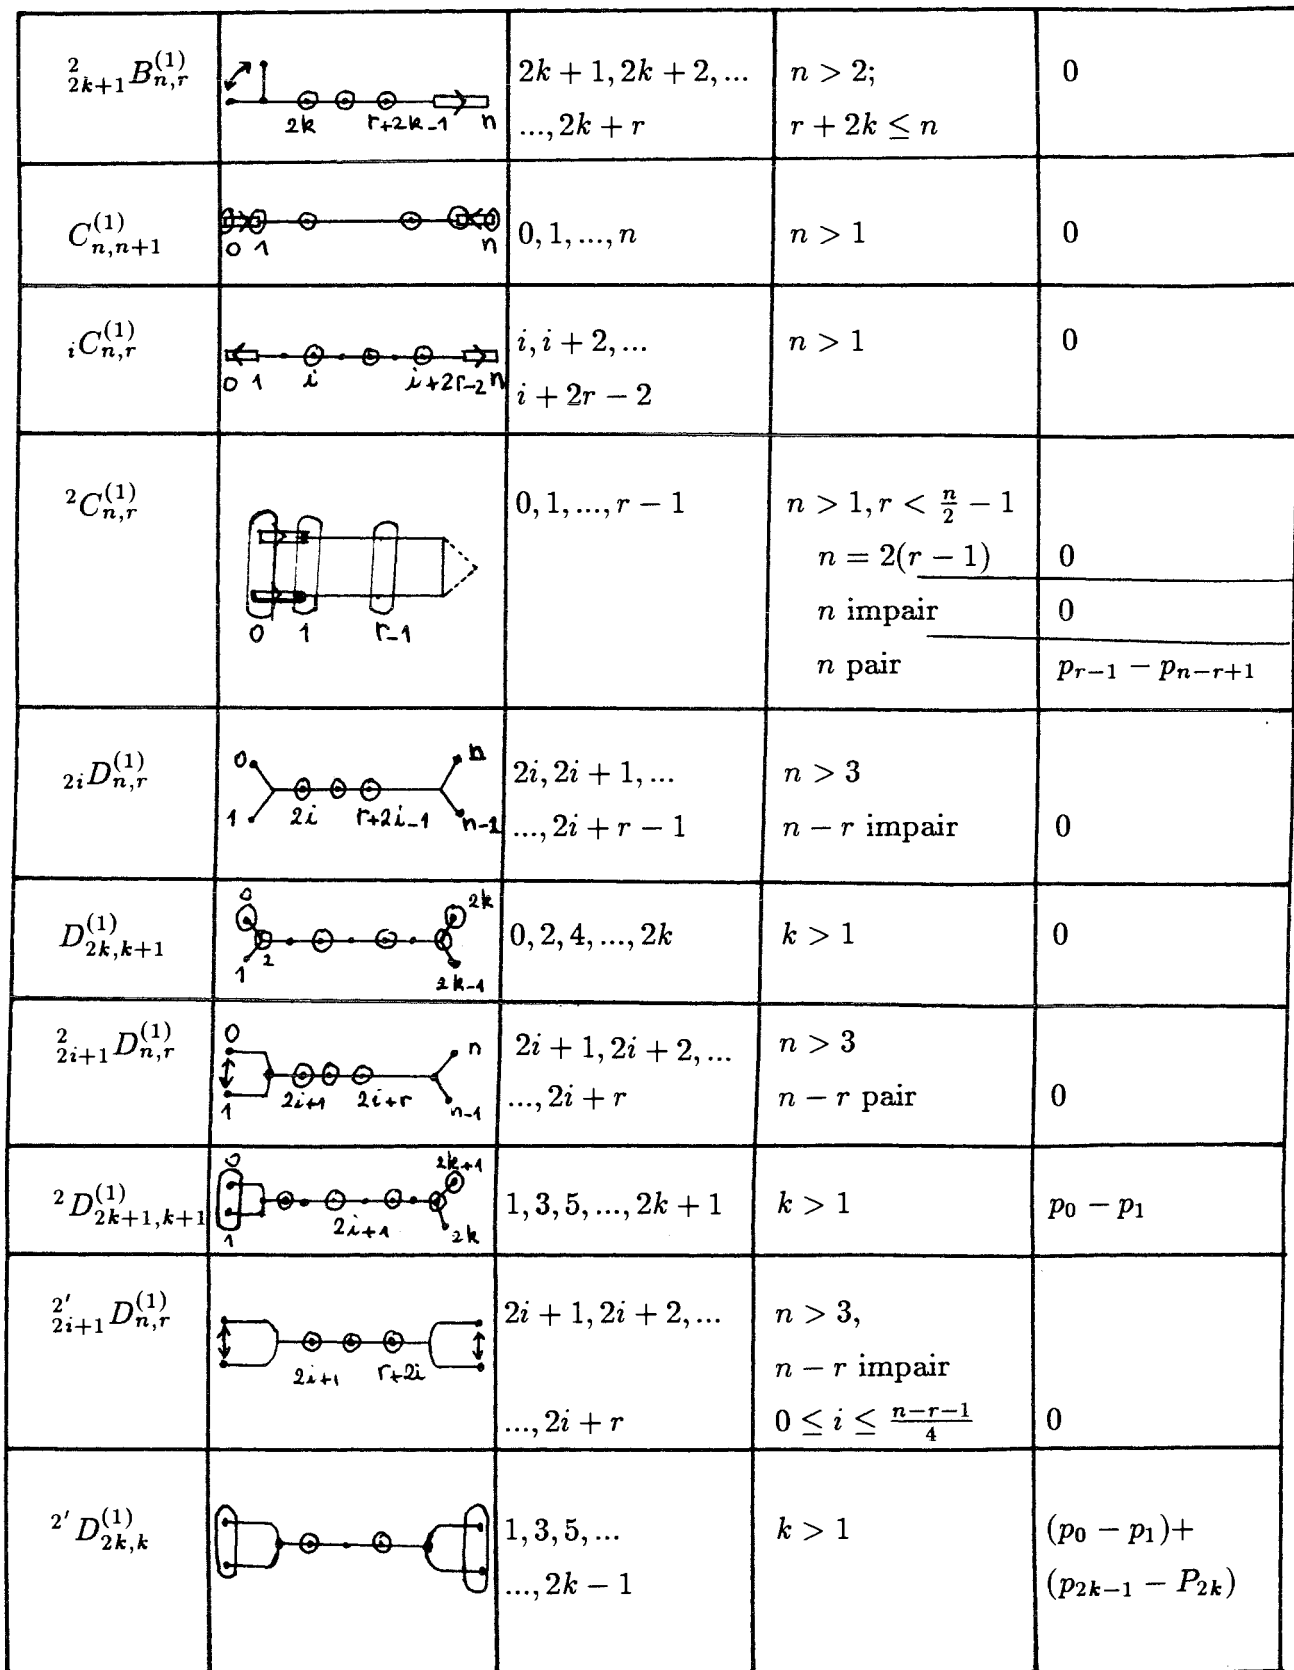 $^{2}_{2k+1}B^{(1)}_{n,r}$
2k r+2k-1 n
2k + 1, 2k + 2, ...
..., 2k + r
n > 2;
r + 2k ≤ n
0
$C^{(1)}_{n,n+1}$
0 1 n
0, 1, ..., n
n > 1
0
$_{i}C^{(1)}_{n,r}$
0 1 i i+2r-2 n
i, i + 2, ...
i + 2r − 2
n > 1
0
$^{2}C^{(1)}_{n,r}$
0 1 r-1
0, 1, ..., r − 1
n > 1, r < $\frac{n}{2}$ − 1
n = 2(r − 1)
0
n impair
0
n pair
$p_{r-1} − p_{n-r+1}$
$_{2i}D^{(1)}_{n,r}$
0 n
1 2i r+2i-1 n-1
2i, 2i + 1, ...
..., 2i + r − 1
n > 3
n − r impair
0
$D^{(1)}_{2k,k+1}$
0 2k
1 2 2k-1
0, 2, 4, ..., 2k
k > 1
0
$^{2}_{2i+1}D^{(1)}_{n,r}$
0 n
1 2i+1 2i+r n-1
2i + 1, 2i + 2, ...
..., 2i + r
n > 3
n − r pair
0
$^{2}D^{(1)}_{2k+1,k+1}$
0 2k+1
1 2i+1 2k
1, 3, 5, ..., 2k + 1
k > 1
$p_0 − p_1$
$^{2'}_{2i+1}D^{(1)}_{n,r}$
2i+1 r+2i
2i + 1, 2i + 2, ...
..., 2i + r
n > 3,
n − r impair
0 ≤ i ≤ $\frac{n-r-1}{4}$
0
$^{2'}D^{(1)}_{2k,k}$
1, 3, 5, ...
..., 2k − 1
k > 1
$(p_0 − p_1)+$
$(p_{2k-1} − P_{2k})$